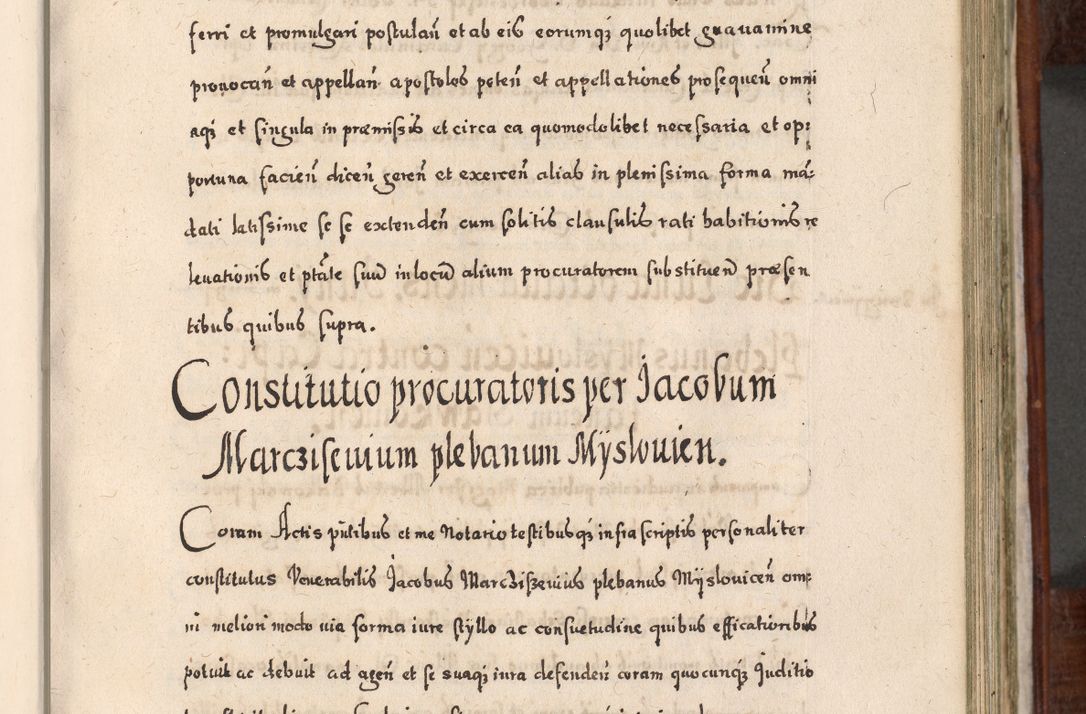 ferri et promulgari postulañ et ab eis eorumqꝫ quolibet gravamine
provocañ et appellañ apostolos peteñ et appellationes prosequeñ omni
aqꝫ et singula in præmissis et circa ea quomodolibet necessaria et op:
portuna facieñ diceñ gereñ et exerceñ alias in plenissima forma mã:
dati latissime se se extendeñ cum solitis clausulis rati habitionis re
levationis et ptãte suũ in locũ alium procuratorem substitueñ præsen
tibus quibus supra.
Constitutio procuratoris per Jacobum
Marczisevium plebanum Mÿslovien.
Coram Actis pñtibus et me Notario testibusqꝫ infra scriptis personaliter
constitutus Venerabilis Jacobus Marcziszevius plebanus Mÿsloviceñ om:
ni meliori modo via forma iure stÿllo ac consuetudine quibus efficatioribus
potuit ac debuit ad ageñ et se suaqꝫ iura defendeñ coram quocunqꝫ Juditio